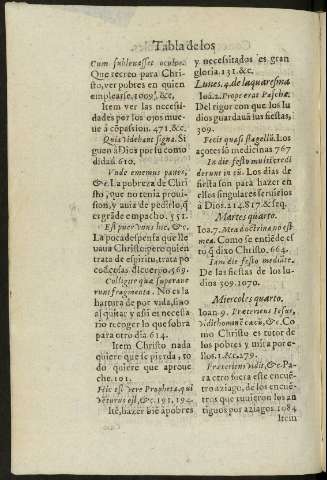 Tabla de los
Cum subleuasset oculos.
Que recreo para Chri-
sto, ver pobres en quien
emplearse. 1009. &c.
Item ver las necessi-
dades por los ojos mue-
ue à cōpassion. 471. &c.
Quia videbant signa. Si
guen à Dios por su como
didad 610.
Vnde ememus panes,
&c. La pobreza de Chri
sto, que no tenia proui-
sion, y auia de pedirlo, q̃
es grāde empacho. 551.
Est puer vnus hic, &c.
La poca despensa que lle
uaua Christo: pero quien
trata de espiritu, trata po
co de cosas d̃l cuerpo. 569.
Colligite quæ superaue
runt fragmenta. No es la
hartura de por vida, sino
al quitar y assi es necessa
rio recoger lo que sobra
para otro dia 614.
Item Christo nada
quiere que se pierda, to
do quiere que aproue
che. 101.
Hic est vere Propheta, qui
vēturus est, &c. 191, 194.
Itē, hazer biē à pobres
y necessitados es gran
gloria. 131. &c.
Lunes. 4. de la quaresma
Ioā. 2. Prope erat Pascha.
Del rigor con que los Iu
dios guardauā sus fiestas,
309.
Fecit quasi flagellū. Los
açotes sō medicinas 767
In die festo multi credi
derunt in eū. Los dias de
fiesta son para hazer en
ellos singulares seruicios
à Dios. 214. 817. & seq.
Martes quarto.
Ioa. 7. Mea doctrina nō est
mea. Como se entiēde es
to q̃ dixo Christo. 664.
Iam die festo mediāte.
De las fiestas de los Iu-
dios 309. 1070.
Miercoles quarto.
Ioann. 9. Præteriens Iesus,
vidit hominē cæcū, &c. Co
mo Christo es tutor de
los pobres y mira por e-
llos. 1. &c. 279.
Præteriens vidit, &c. Pa-
ra otro fuera este encuē
tro aziago, de los encuē-
tros que tuuieron los an
tiguos por aziagos. 1084
Item